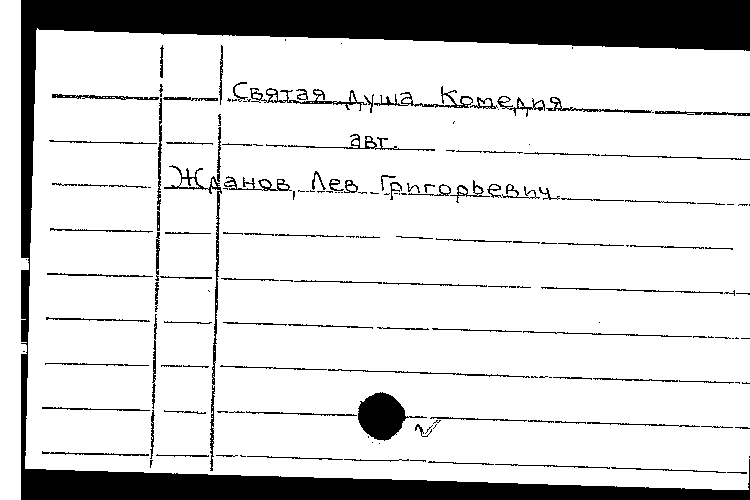 Святая душа Комедия
авт.
Жданов, Лев Григорьевич.